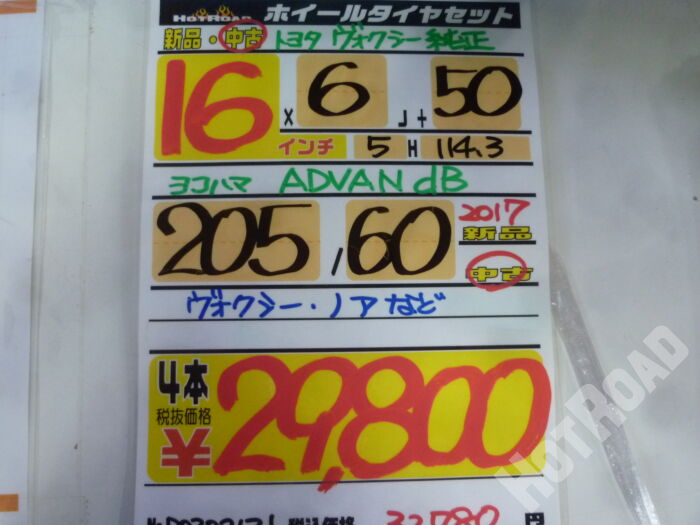 HOTROAD ホイールタイヤセット
新品・中古 トヨタ ヴォクシー 純正
16 x 6 J + 50
インチ 5 H 114.3
ヨコハマ ADVAN dB
205 / 60 2017
新品
中古
ヴォクシー・ノア など
4本
税抜価格
¥29,800
税込価格 32,780 円
HOTROAD